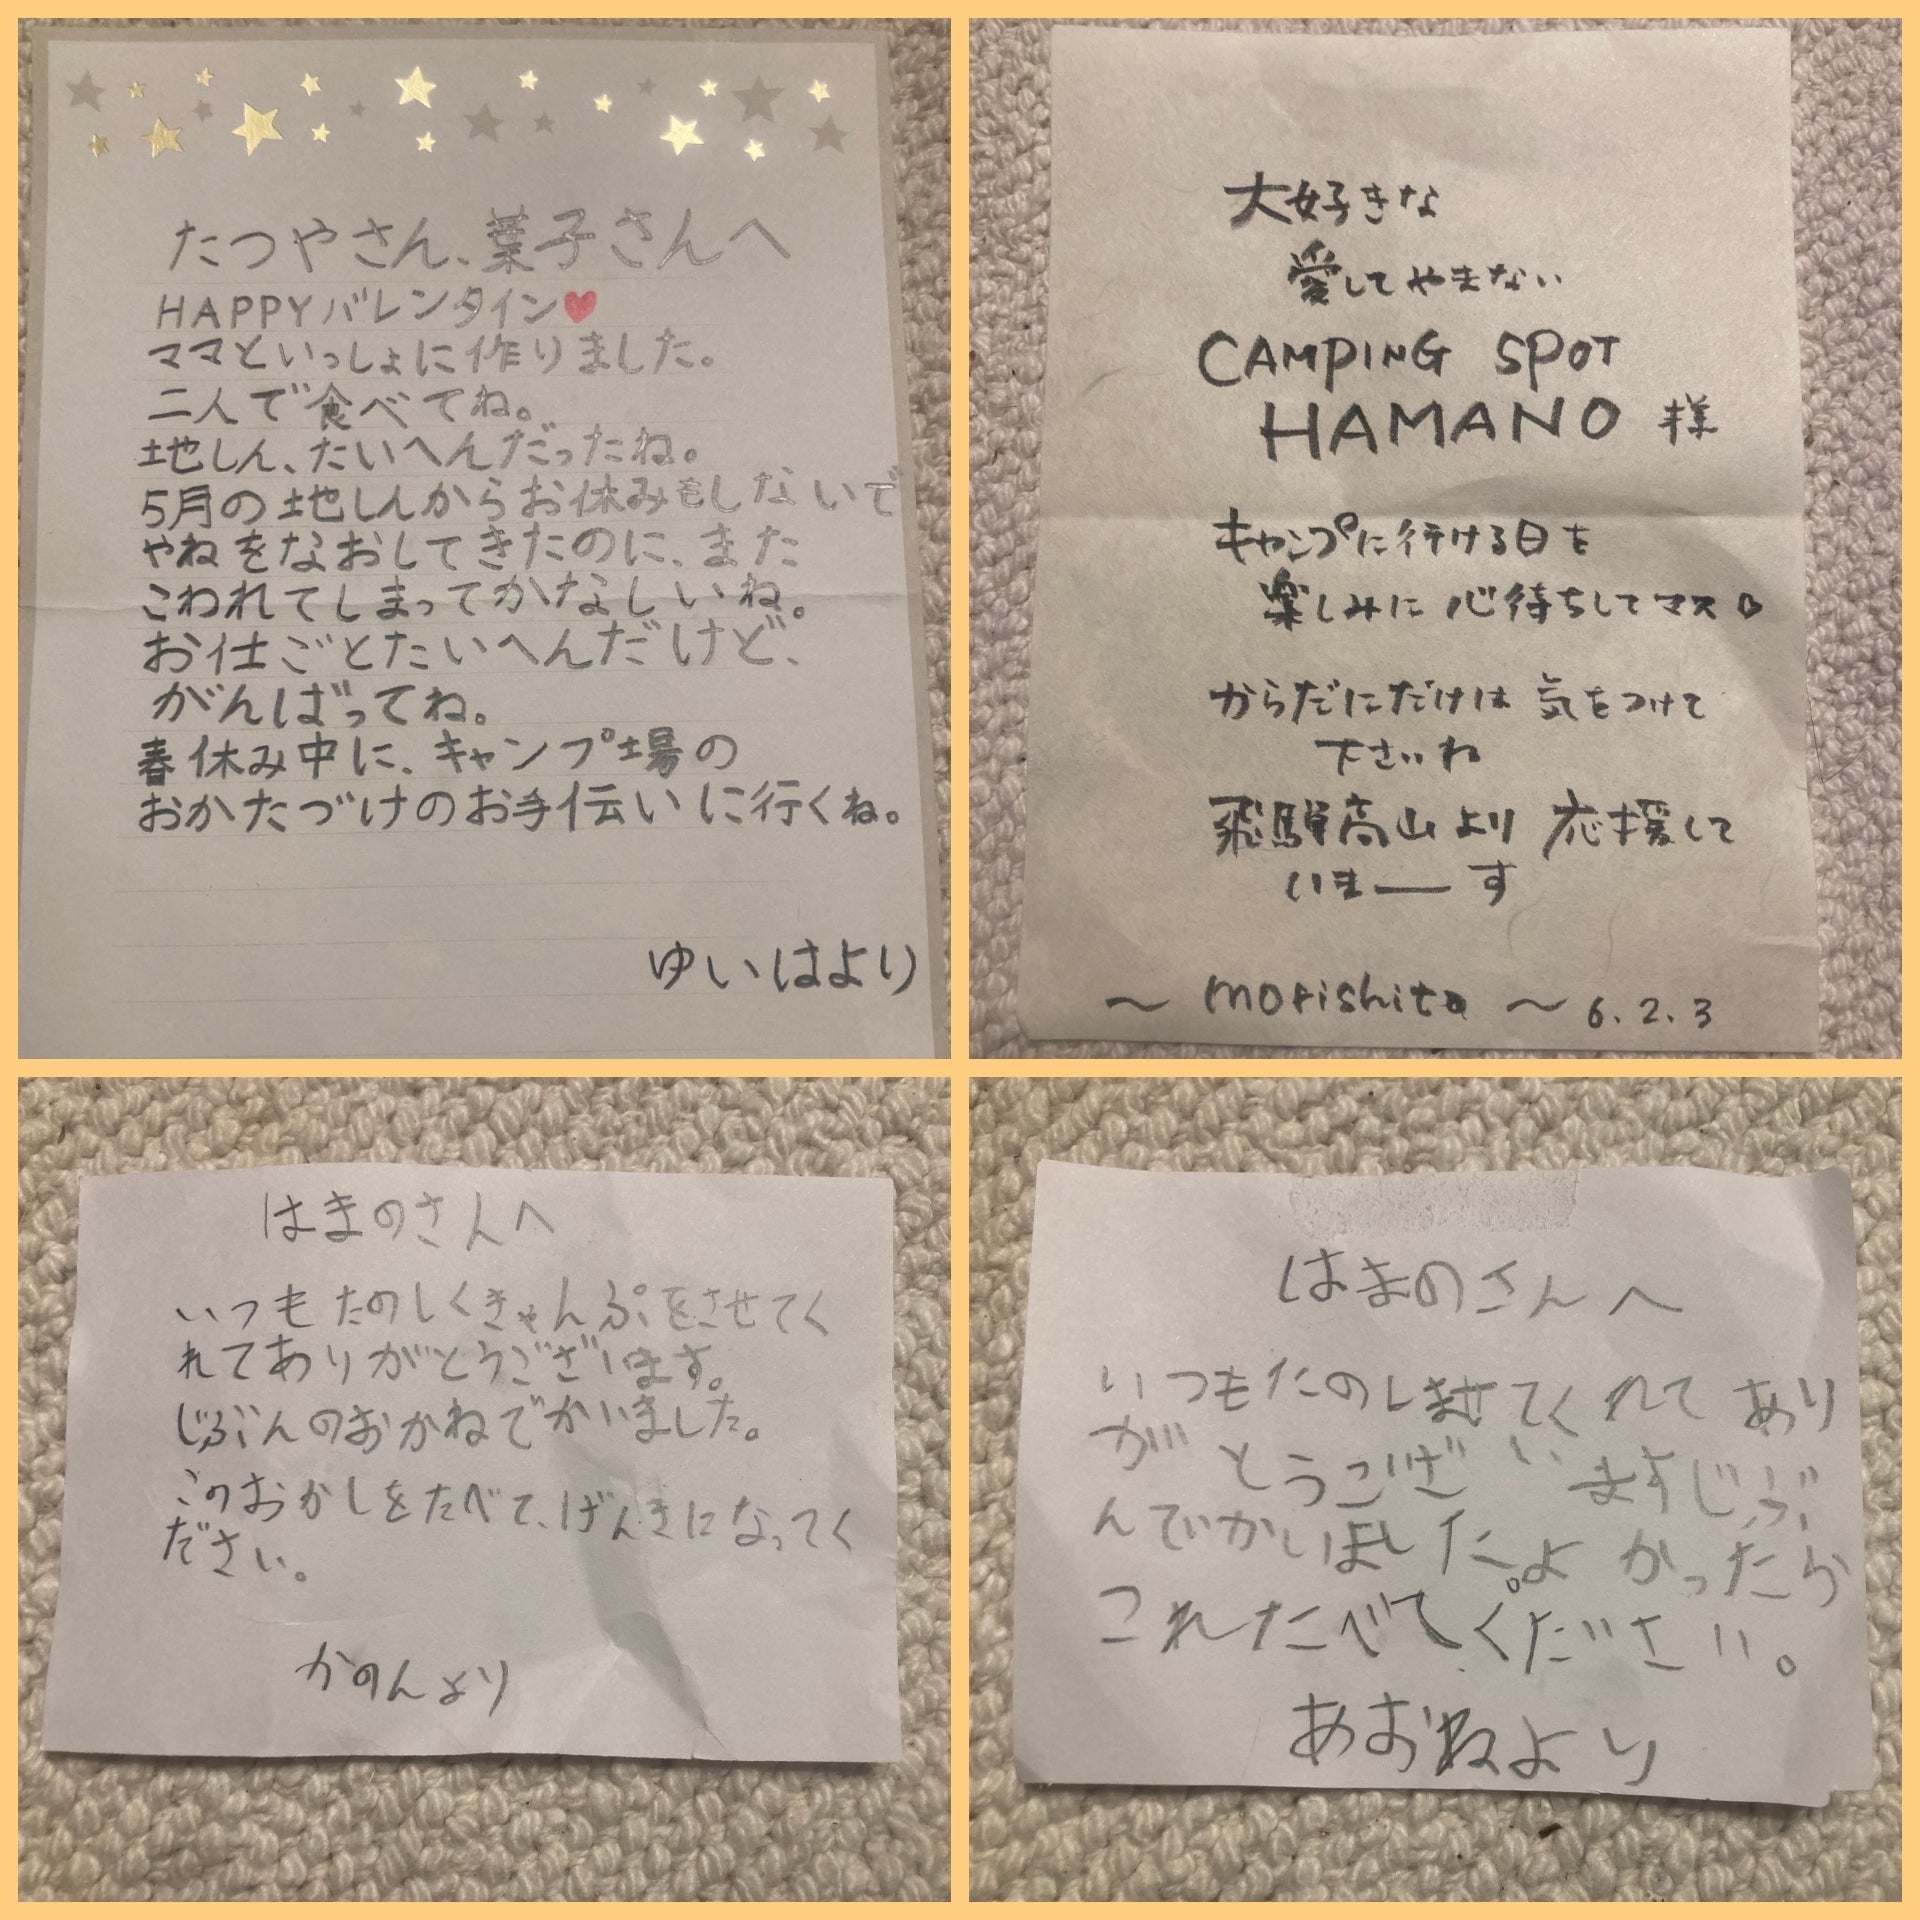 たつやさん、葉子さんへ
HAPPYバレンタイン♥
ママといっしょに作りました。
二人で食べてね。
地しん、たいへんだったね。
5月の地しんからお休みもしないで
やねをなおしてきたのに、また
こわれてしまってかなしいね。
お仕ごとたいへんだけど、
がんばってね。
春休み中に、キャンプ場の
おかたづけのお手伝いに行くね。
ゆいはより
大好きな
愛してやまない
CAMPING SPOT
HAMANO 様
キャンプに行ける日を
楽しみに心待ちしてマス♡
からだにだけは気をつけて
下さいね
飛騨高山より応援して
いまーす
～morishita～6.2.3
はまのさんへ
いつもたのしくきゃんぷをさせてく
れてありがとうございます。
じぶんのおかねでかいました。
このおかしをたべて、げんきになってく
ださい。
かのんより
はまのさんへ
いつもたのしませてくれてあり
がとうございますじぶ
んでかいました。よかったら
これたべてください。
あおねより